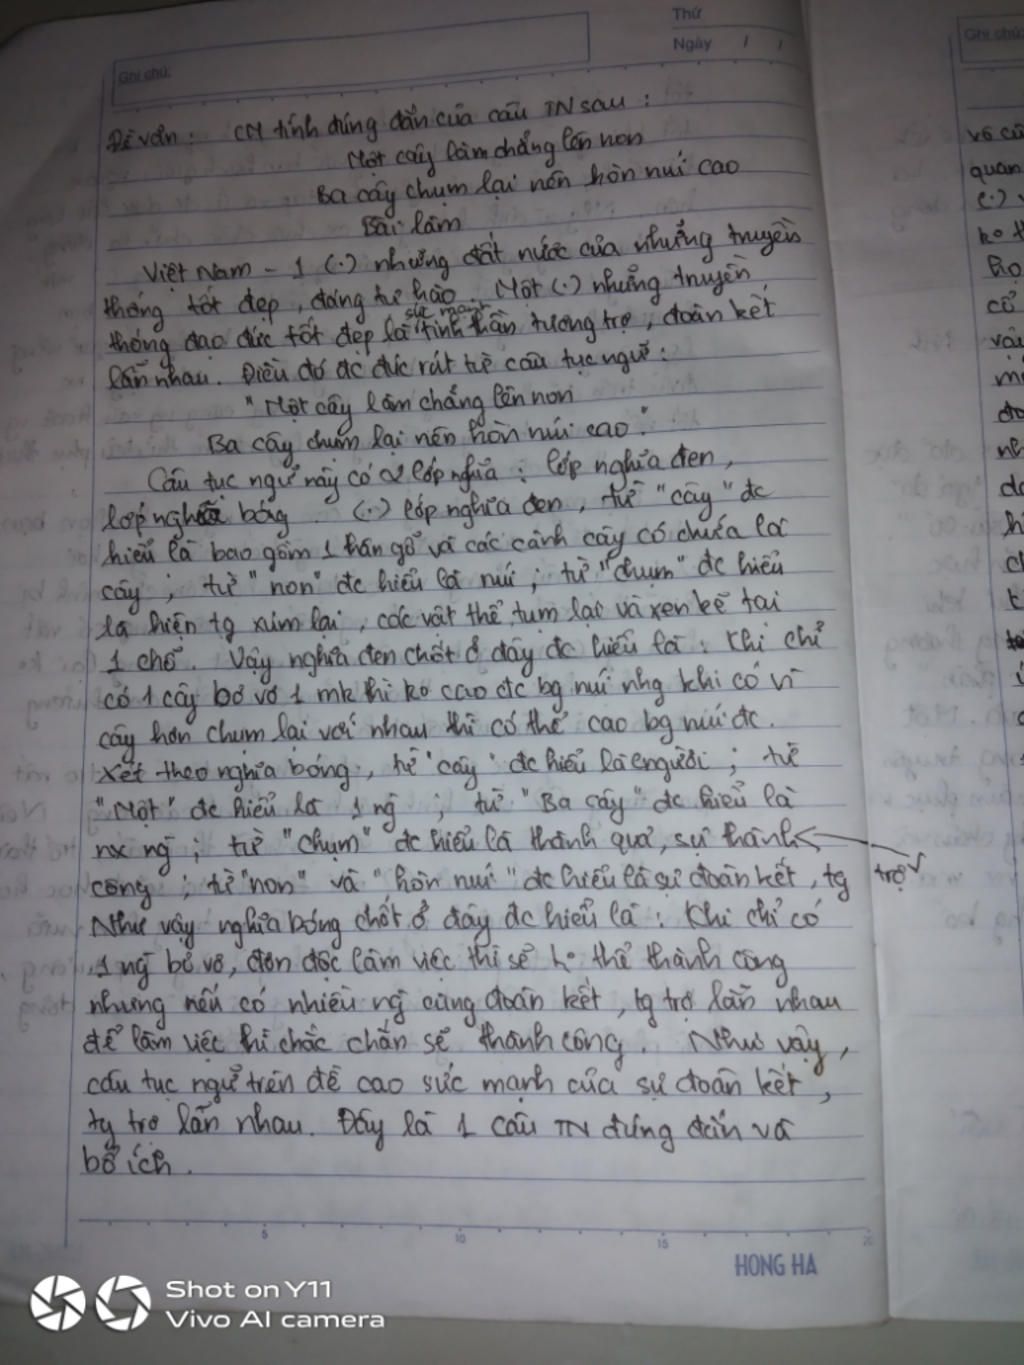 Thứ
Ngày / /
Ghi chú:
Ghi chú:
Đề văn : CM tính đúng đắn của câu TN sau :
Một cây làm chẳng lên non
Ba cây chụm lại nên hòn núi cao
Bài làm
Việt Nam - 1 (.) những đất nước của những truyền
thống tốt đẹp, đáng tự hào. Một (.) những truyền
sức mạnh
thống đạo đức tốt đẹp là tinh thần tương trợ, đoàn kết
lẫn nhau. Điều đó đc đúc rút từ câu tục ngữ :
" Một cây làm chẳng lên non
Ba cây chụm lại nên hòn núi cao."
Câu tục ngữ này có 2 lớp nghĩa : lớp nghĩa đen,
lớp nghĩa bóng. (.) lớp nghĩa đen, từ "cây" đc
hiểu là bao gồm 1 thân gỗ và các cành cây có chứa lá
cây ; từ "non" đc hiểu là núi ; từ "chụm" đc hiểu
là hiện tg xúm lại, các vật thể tụm lại và xen kẽ tại
1 chỗ. Vậy nghĩa đen chốt ở đây đc hiểu là : Khi chỉ
có 1 cây bơ vơ 1 mk thì ko cao đc bg núi nhg khi có
cây hơn chụm lại với nhau thì có thể cao bg núi đc.
Xét theo nghĩa bóng, từ "cây" đc hiểu là người ; từ
"Một" đc hiểu là 1 ng ; từ "Ba cây" đc hiểu là
nx ng ; từ "chụm" đc hiểu là thành quả, sự thành
công ; từ "non" và "hòn núi" đc hiểu là sự đoàn kết, tg trợ
Như vậy nghĩa bóng chốt ở đây đc hiểu là : Khi chỉ có
1 ng bơ vơ, đơn độc làm việc thì sẽ ko thể thành công
nhưng nếu có nhiều ng cùng đoàn kết, tg trợ lẫn nhau
để làm việc thì chắc chắn sẽ thành công. Như vậy,
câu tục ngữ trên đề cao sức mạnh của sự đoàn kết,
tg trợ lẫn nhau. Đây là 1 câu TN đúng đắn và
bổ ích.
5 10 15 20
HONG HA
Shot on Y11
Vivo AI camera